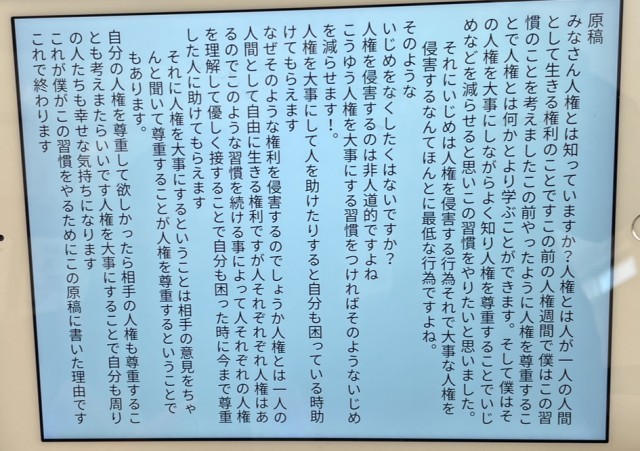 原稿
みなさん人権とは知っていますか？人権とは人が一人の人間
として生きる権利のことですこの前の人権週間で僕はこの習
慣のことを考えましたこの前やったように人権を尊重するこ
とで人権とは何かとより学ぶことができます。そして僕はそ
の人権を大事にしながらよく知り人権を尊重することでいじ
めなどを減らせると思いこの習慣をやりたいと思いました。
それにいじめは人権を侵害する行為それで大事な人権を
侵害するなんてほんとに最低な行為ですよね。
そのような
いじめをなくしたくはないですか？
人権を侵害するのは非人道的ですよね
こうゆう人権を大事にする習慣をつければそのようないじめ
を減らせます！。
人権を大事にして人を助けたりすると自分も困っている時助
けてもらえます
なぜそのような権利を侵害するのでしょうか人権とは一人の
人間として自由に生きる権利ですが人それぞれぞれ人権はあ
るのでこのような習慣を続ける事によって人それぞれの人権
を理解して優しく接することで自分も困った時に今まで尊重
した人に助けてもらえます
それに人権を大事にするということは相手の意見をちゃ
んと聞いて尊重することが人権を尊重するということで
もあります。
自分の人権を尊重して欲しかったら相手の人権も尊重するこ
とも考えまたらいいです人権を大事にすることで自分も周り
の人たちも幸せな気持ちになります
これが僕がこの習慣をやるためにこの原稿に書いた理由です
これで終わります